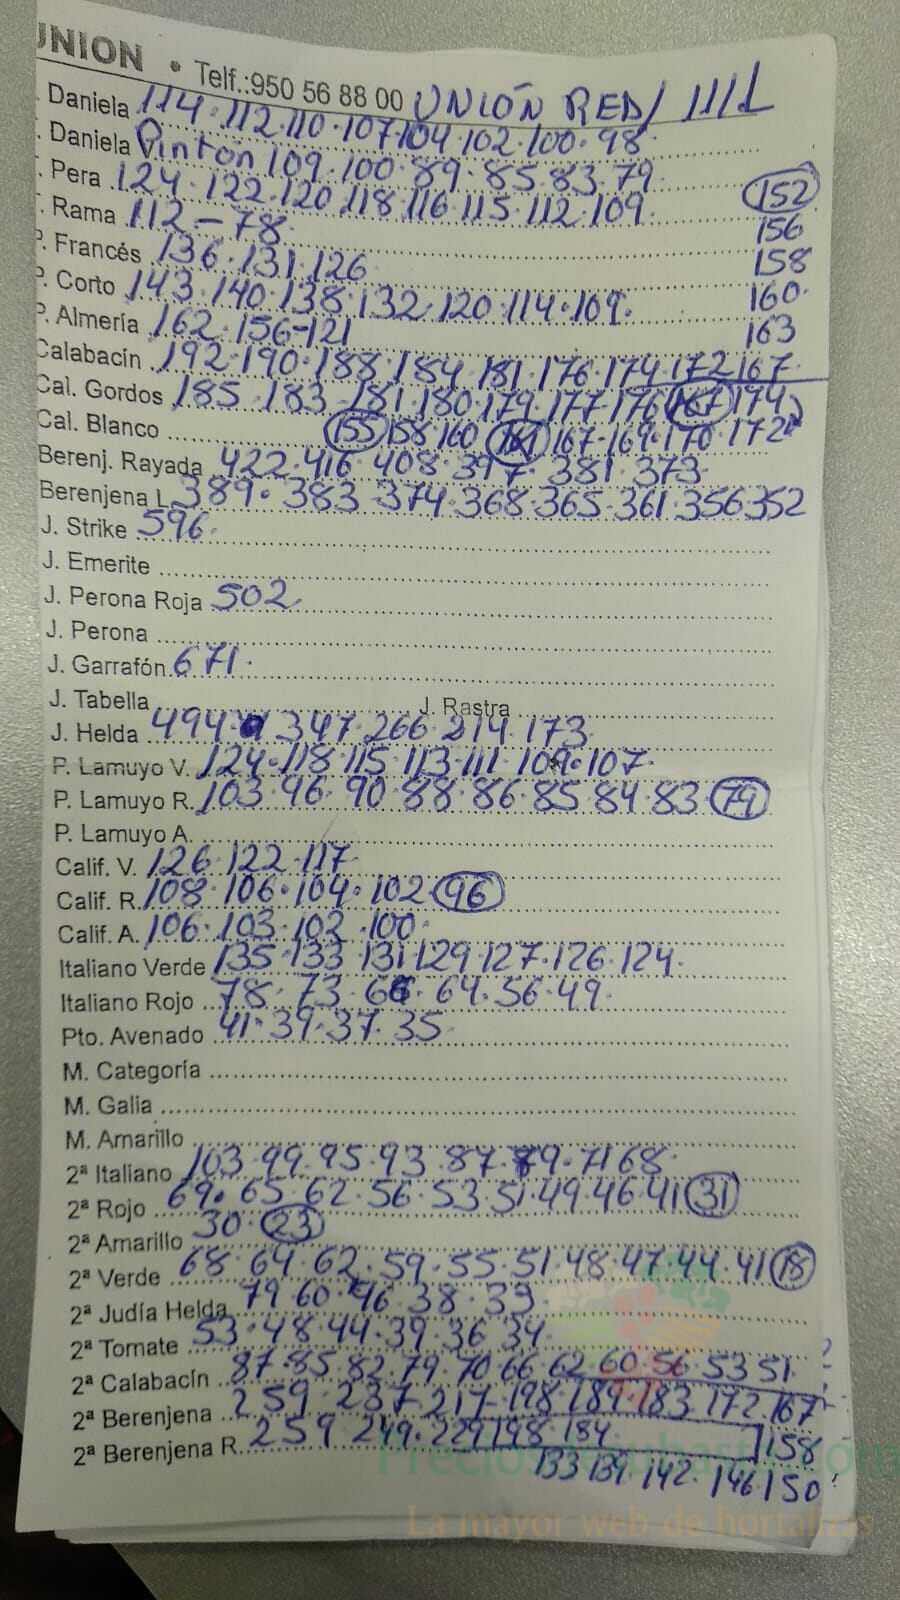 UNION • Telf.:950 56 88 00 UNIÓN RED/ 11/1
. Daniela 114.112.110.107.104.102.100.98
. Daniela Pinton 109.100.89.85.83.79
. Pera 124.122.120.118.116.115.112.109. (152)
. Rama 112-78 156
P. Francés 136.131.126 158
P. Corto 143.140.138.132.120.114.109. 160
P. Almería 162.156-121 163
Calabacín 192.190.188.184.181.176.174.172 167
Cal. Gordos 185.183-181.180.179.177.176 (167) 174
Cal. Blanco (155) 158.160 167-169.170.172
Berenj. Rayada 422.416.408.397.381.373
Berenjena L 389.383.374.368.365.361.356 352
J. Strike 596
J. Emerite
J. Perona Roja 502
J. Perona
J. Garrafón 671
J. Tabella J. Rastra
J. Helda 494 347.266.214.173
P. Lamuyo V. 124.118.115.113.111.109.107
P. Lamuyo R. 103.96.90.88.86.85.84.83 (79)
P. Lamuyo A.
Calif. V. 126.122.117
Calif. R. 108.106.104.102 (96)
Calif. A. 106.103.102.100
Italiano Verde 135.133 131 129.127.126.124
Italiano Rojo 78.73.66.64.56.49
Pto. Avenado 41.39.37.35
M. Categoría
M. Galia
M. Amarillo
2ª Italiano 103.99.95.93.87.79.71 68
2ª Rojo 69.65.62.56.53.51.49.46.41 (31)
2ª Amarillo 30.(23)
2ª Verde 68.64.62.59.55.51.48.47.44.41 (18)
2ª Judía Helda 79 60.46.38.33
2ª Tomate 53.48.44.39.36 34
2ª Calabacín 87.85 82.79.70 66 62 60 56 53 51
2ª Berenjena 259.237.217-198.189.183.172.167
2ª Berenjena R. 259 249.229 198.184 158
133 139.142.146 150
La mayor web de hortalizas